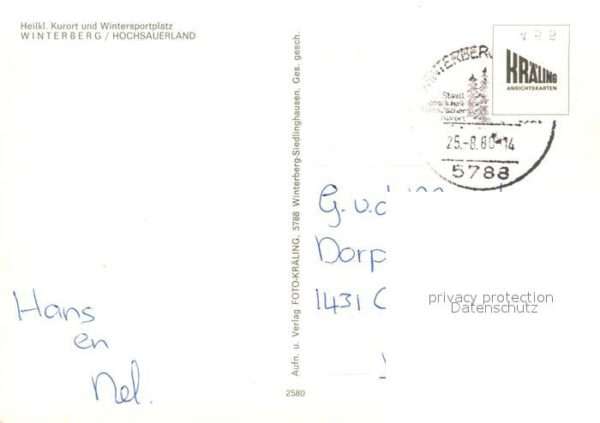 Heilkl. Kurort und Wintersportplatz
WINTERBERG / HOCHSAUERLAND
Hans
en
Nel.
Aufn. u. Verlag FOTO-KRÄLING, 5788 Winterberg-Siedlinghausen. Ges. gesch.
2580
KRÄLING
ANSICHTSKARTEN
WINTERBERG
25.-8.80-14
5788
G.v.d.
Dorp
1431 C
privacy protection
Datenschutz